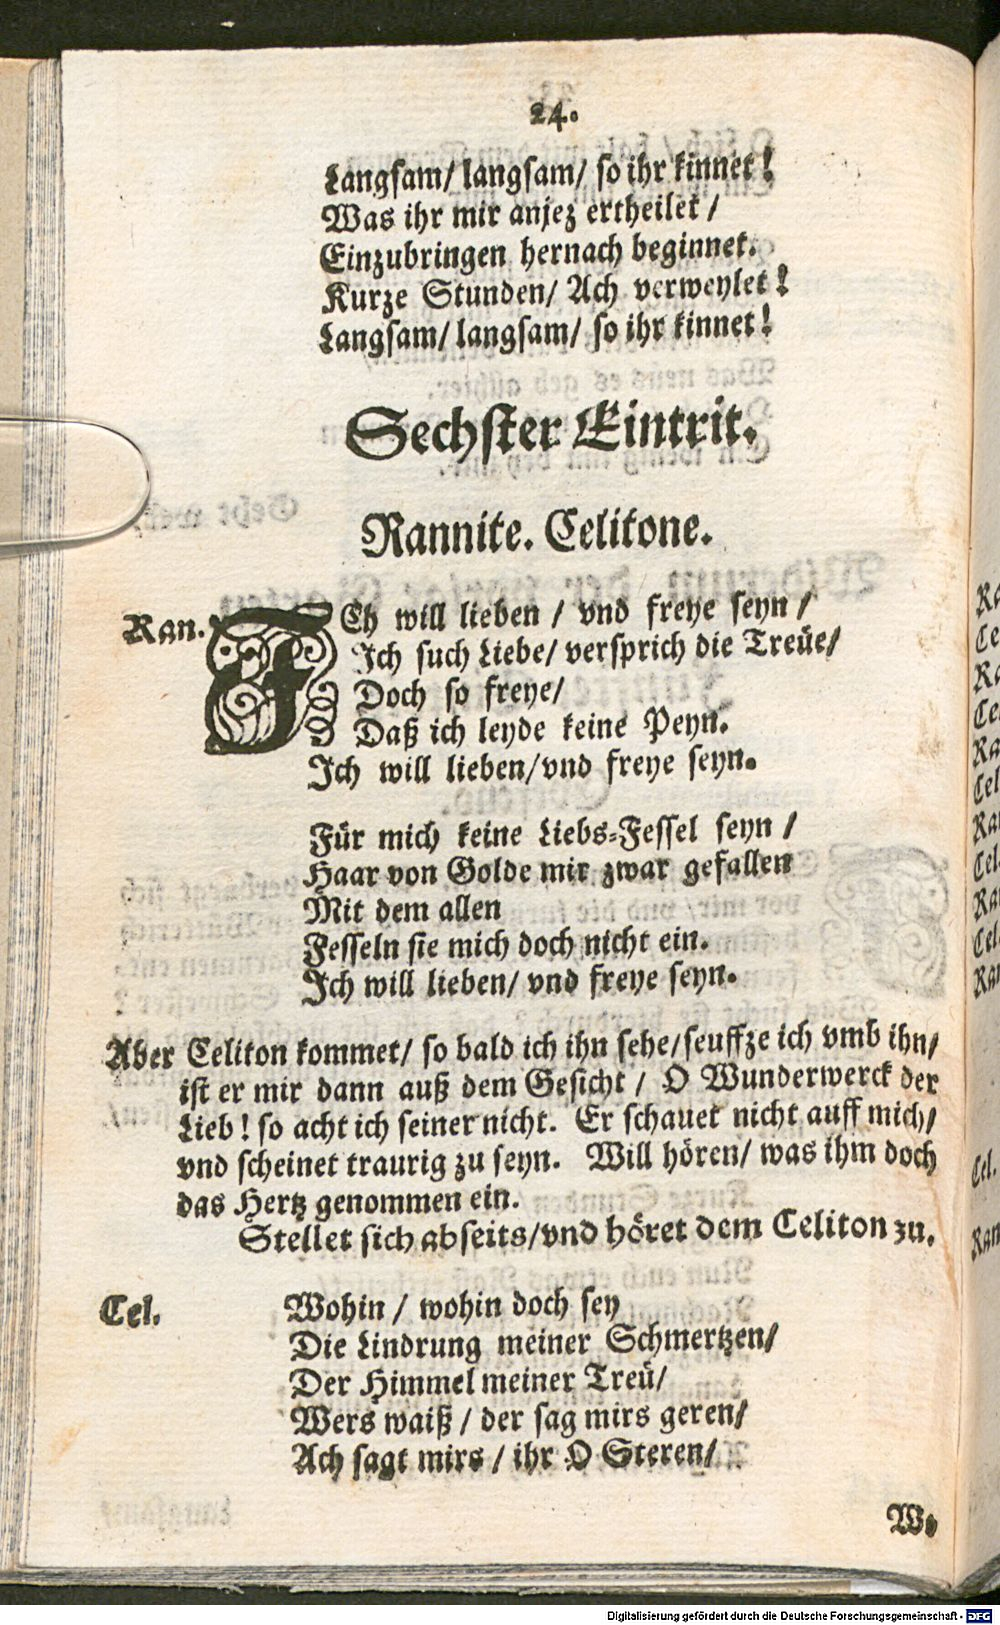 24.
Langsam/ langsam/ so ihr kinnet!
Was ihr mir anjez ertheilet /
Einzubringen hernach beginnet.
Kurze Stunden/ Ach verweylet!
Langsam/ langsam/ so ihr kinnet!
Sechster Eintrit.
Rannite. Celitone.
Ran. ICh will lieben / vnd freye seyn /
Ich such Liebe/ versprich die Treüe/
Doch so freye/
Daß ich leyde keine Peyn.
Ich will lieben/vnd freye seyn.
Für mich keine Liebs-Fessel seyn /
Haar von Golde mir zwar gefallen
Mit dem allen
Fesseln sie mich doch nicht ein.
Ich will lieben/ vnd freye seyn.
Aber Celiton kommet/ so bald ich ihn sehe/seuffze ich vmb ihn/
ist er mir dann auß dem Gesicht / O Wunderwerck der
Lieb! so acht ich seiner nicht. Er schauet nicht auff mich/
vnd scheinet traurig zu seyn. Will hören/ was ihm doch
das Hertz genommen ein.
Stellet sich abseits/vnd höret dem Celiton zu.
Cel. Wohin / wohin doch sey
Die Lindrung meiner Schmertzen/
Der Himmel meiner Treü/
Wers waiß / der sag mirs geren/
Ach sagt mirs / ihr O Steren/
Wo
Digitalisierung gefördert durch die Deutsche Forschungsgemeinschaft - DFG